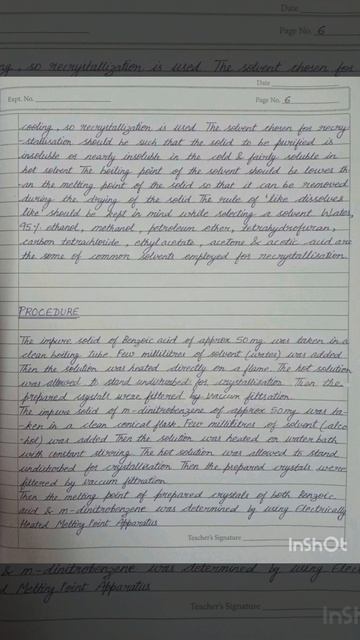 Date
Page No. 6
ng, so recrystallization is used The solvent chosen for
Date
Expt. No.
Page No. 6
cooling, so recrystallization is used The solvent chosen for recry
-stallisation should be such that the solid to be purified is
insoluble or nearly insoluble in the cold & fairly soluble in
hot solvent The boiling point of the solvent should be lower th
an the melting point of the solid so that it can be removed
during the drying of the solid The rule of 'like dissolves
like' should be kept in mind while selecting a solvent Water,
95% ethanol, methanol, petroleum ether, tetrahydrofuran,
carbon tetrachloride, ethyl acetate, acetone & acetic acid are
the some of common solvents employed for recrystallisation
PROCEDURE
The impure solid of Benzoic acid of approx 50 mg was taken in a
clean boiling tube Few millilitres of solvent (water) was added
Then the solution was heated directly on a flame. The hot solution
was allowed to stand undisturbed for crystallisation Then the
prepared crystals were filtered by vacuum filtration
The impure solid of m-dinitrobenzene of approx 50mg was ta-
-ken in a clean conical flask Few millilitres of solvent (alco
-hol) was added Then the solution was heated on water bath
with constant stirring The hot solution was allowed to stand
undisturbed for crystallisation Then the prepared crystals were
filtered by vacuum filtration
Then the melting point of prepared crystals of both Benzoic
acid & m-dinitrobenzene was determined by using Electrically
Heated Melting Point Apparatus
Teacher's Signature
InShOt
& m-dinitrobenzene was determined by using Elec
d Melting Point Apparatus
Teacher's Signature
InSh